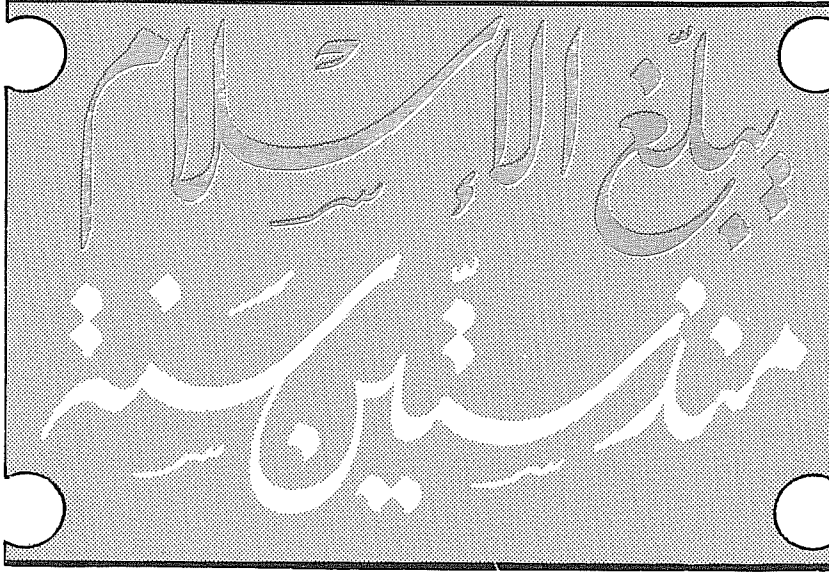 يبلّغ الإسلام
منذ ستّين سَنة